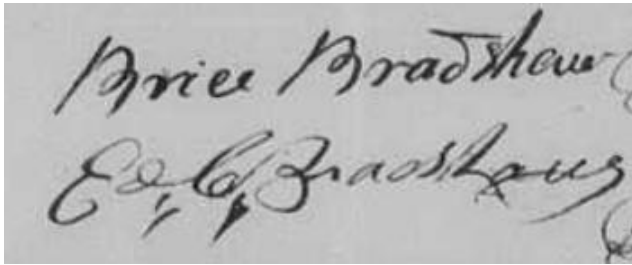 Brice Bradshaw
Ed, C, Bradshaw